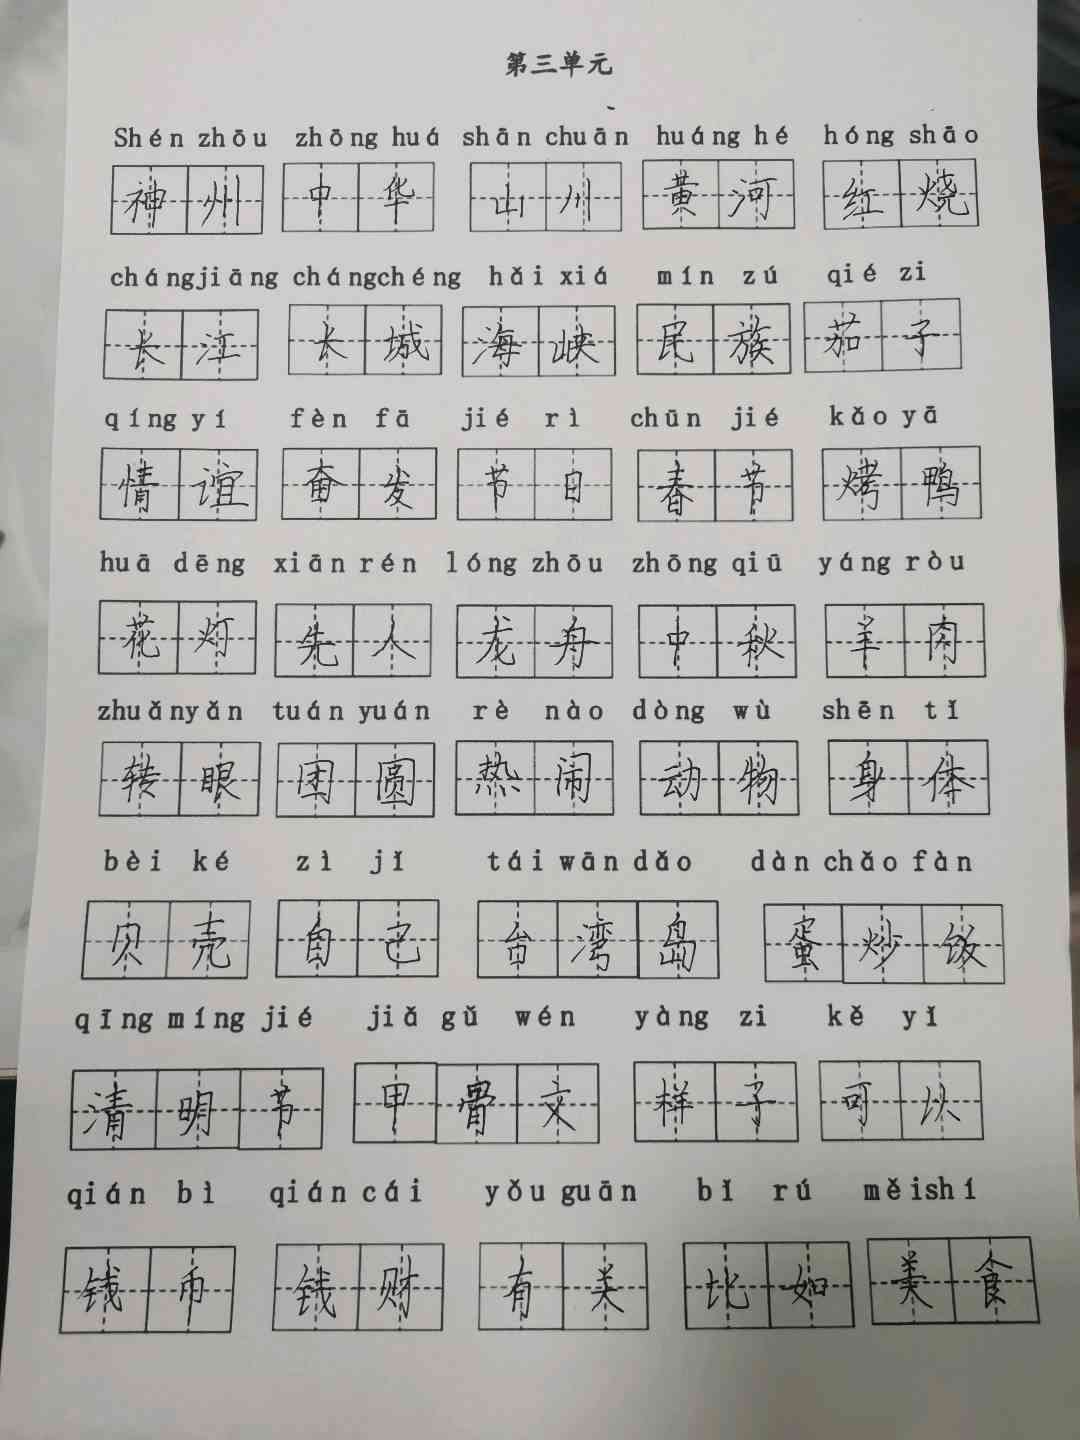 第三单元
Shén zhōu zhōng huá shān chuān huáng hé hóng shāo
神州 中华 山川 黄河 红烧
chángjiāng chángchéng hǎi xiá mín zú qié zi
长江 长城 海峡 民族 茄子
qíng yí fèn fā jié rì chūn jié kǎo yā
情谊 奋发 节日 春节 烤鸭
huā dēng xiān rén lóng zhōu zhōng qiū yáng ròu
花灯 先人 龙舟 中秋 羊肉
zhuǎnyǎn tuán yuán rè nào dòng wù shēn tǐ
转眼 团圆 热闹 动物 身体
bèi ké zì jǐ tái wān dǎo dàn chǎo fàn
贝壳 自己 台湾岛 蛋炒饭
qīng míng jié jiǎ gǔ wén yàng zi kě yǐ
清明节 甲骨文 样子 可以
qián bì qián cái yǒu guān bǐ rú měishí
钱币 钱财 有关 比如 美食